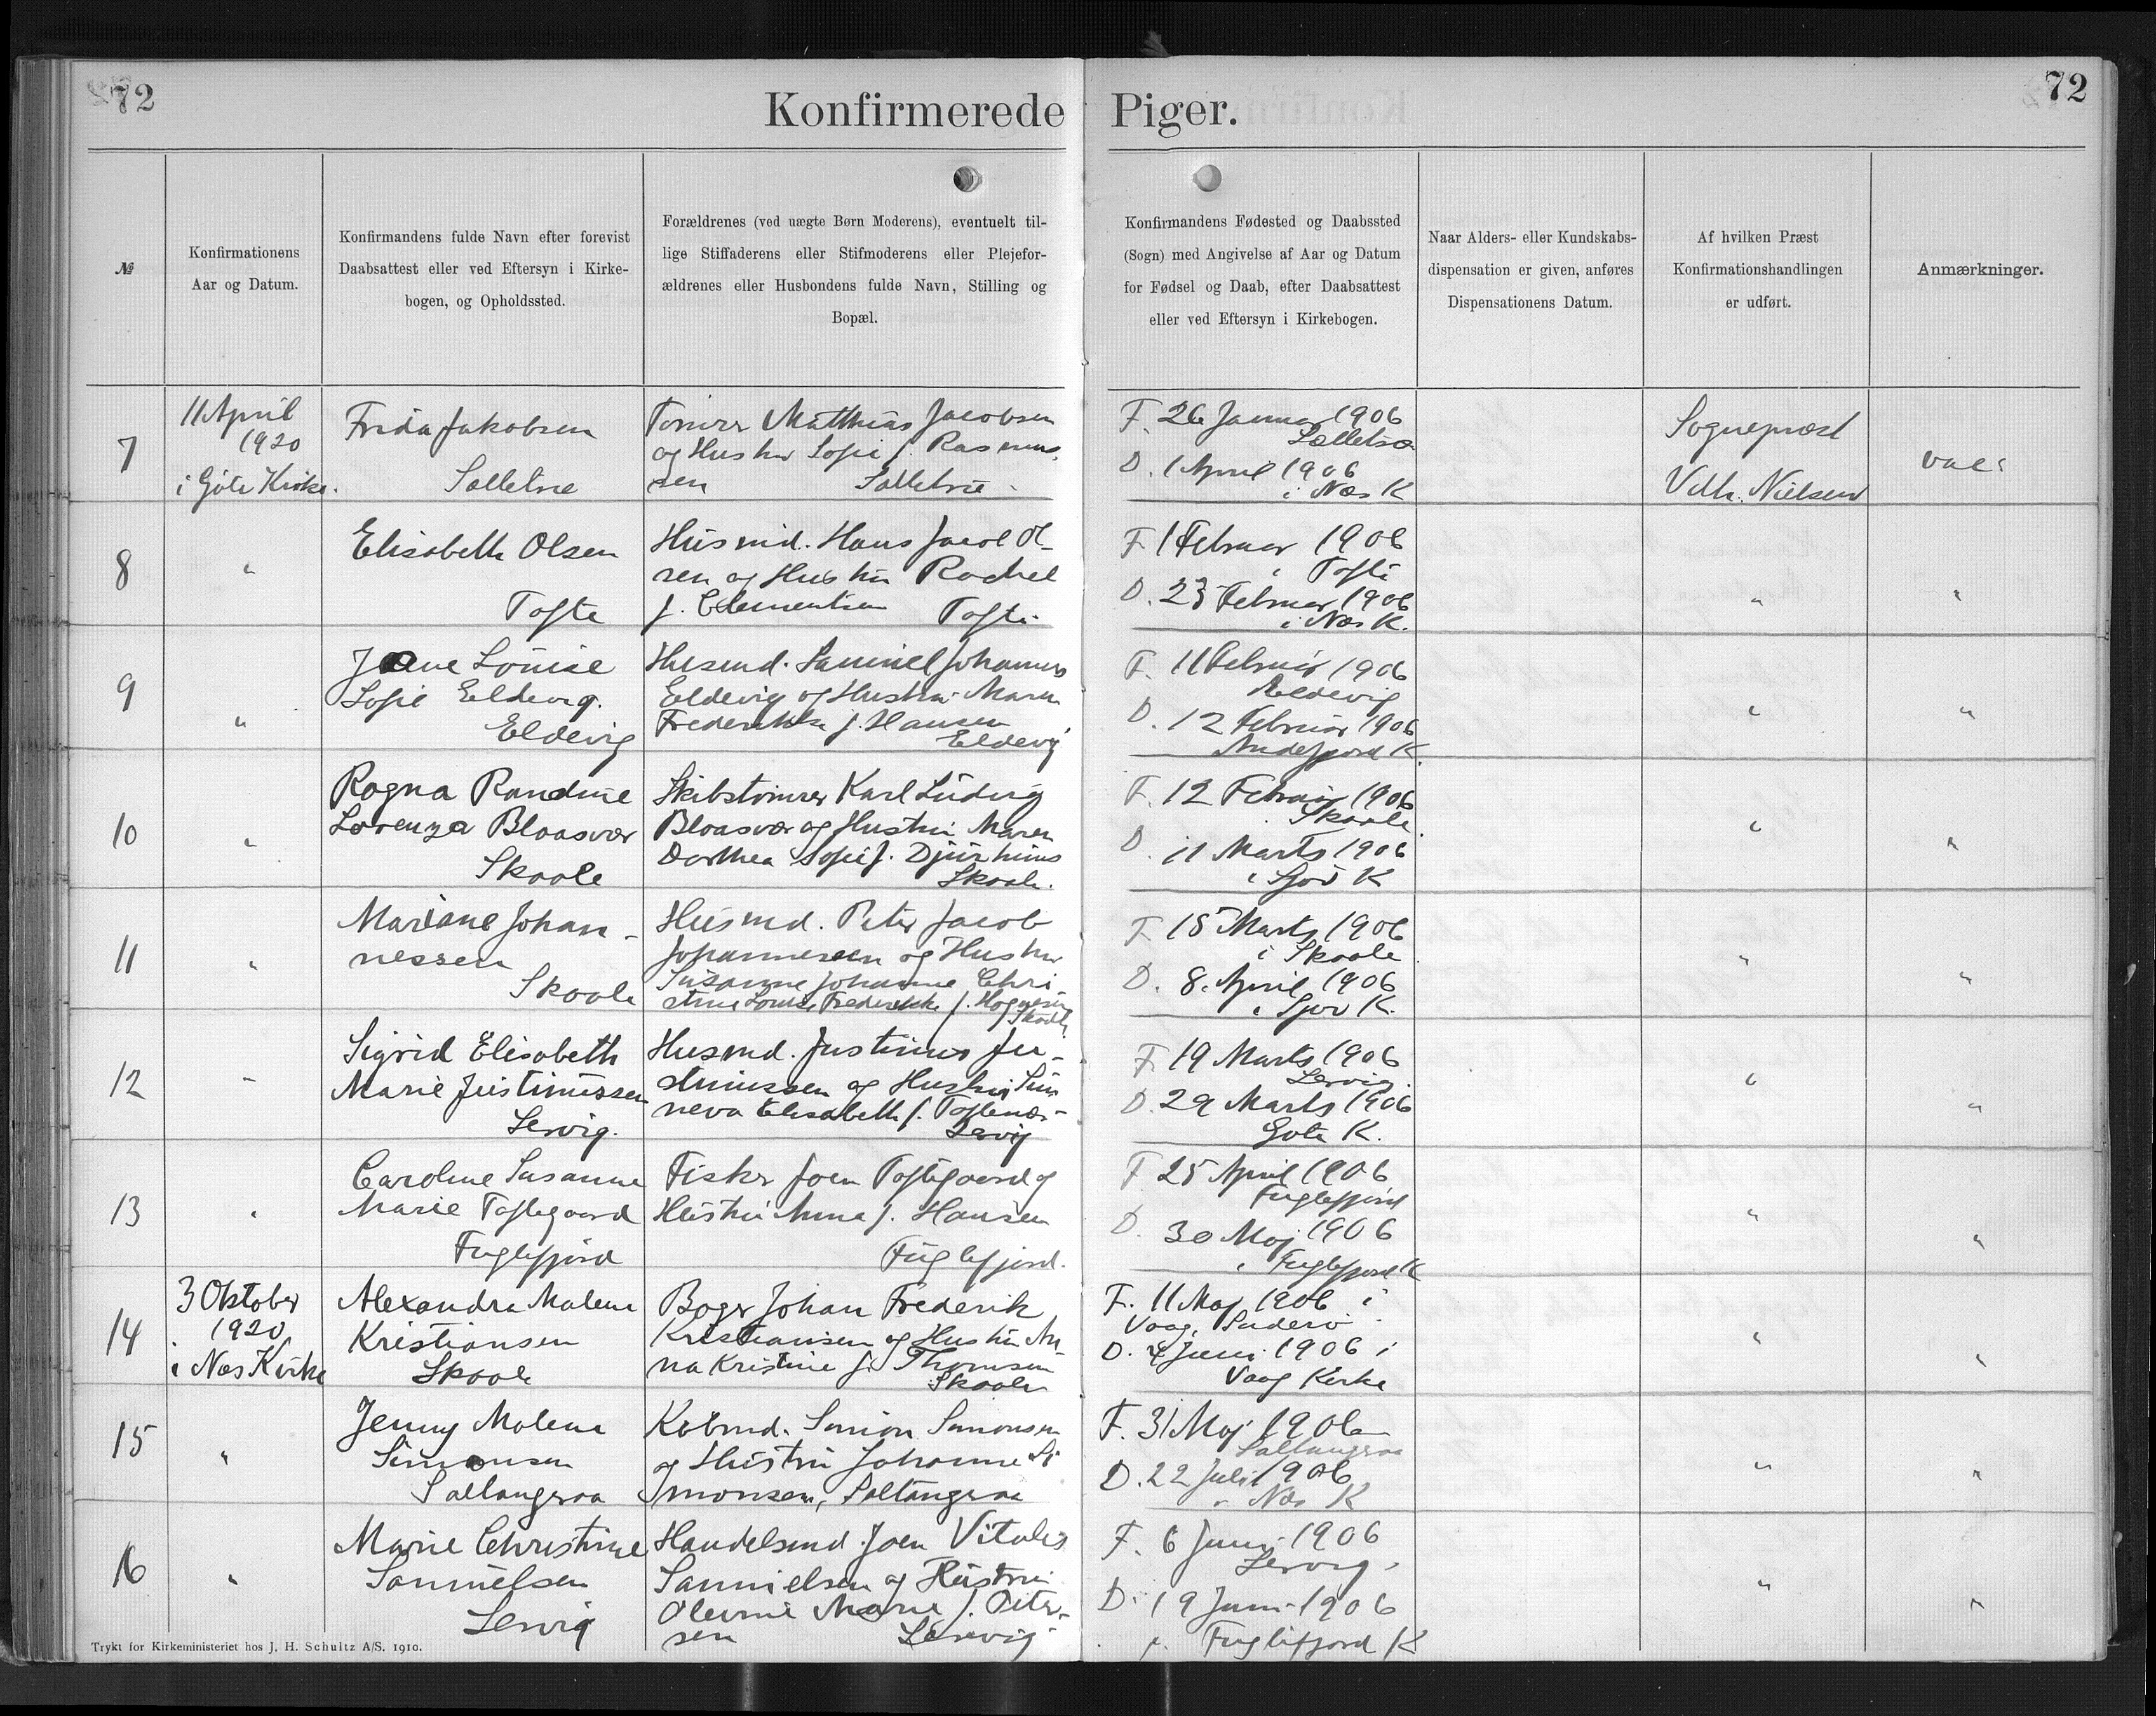 72
Konfirmerede Piger.
72
№
Konfirmationens
Aar og Datum.
Konfirmandens fulde Navn efter forevist
Daabsattest eller ved Eftersyn i Kirke-
bogen, og Opholdssted.
Forældrenes (ved uægte Børn Moderens), eventuelt til-
lige Stiffaderens eller Stifmoderens eller Plejefor-
ældrenes eller Husbondens fulde Navn, Stilling og
Bopæl.
Konfirmandens Fødested og Daabssted
(Sogn) med Angivelse af Aar og Datum
for Fødsel og Daab, efter Daabsattest
eller ved Eftersyn i Kirkebogen.
Naar Alders- eller Kundskabs-
dispensation er given, anføres
Dispensationens Datum.
Af hvilken Præst
Konfirmationshandlingen
er udført.
Anmærkninger.
7
11 April
1920
i Göte Kirke.
Frida Jakobsen
Solletrø
Tömrer Matthias Jacobsen
og Hustru Sofie f. Rasmus-
sen
F. 26 Januar 1906
D. 1 April 1906
i Næs K
Sognepræst
Vilh. Nielsen
8
"
Elisabeth Olsen
Tofte
Husmd. Hans Jacob Ol-
sen og Hustru Rachel
f. Clementsen Tofte.
F. 1 Februar 1906
i Tofte
D. 23 Februar 1906
i Næs K.
"
"
9
"
Louise
Sofie Eldevig.
Eldevig
Husmd. Samuel Johannes
Eldevig og Hustru Maren
Frederikke f. Hansen
Eldevig
F. 11 Februar 1906
Eldevig
D. 12 Februar 1906
Andefjord K.
"
"
10
"
Ragna Randine
Lorenza Blaasvær
Skaale
Skibstömrer Karl Ludvig
Blaasvær og Hustru Maren
Dorthea Sofie f. Djurhuus
Skaale.
F. 12 Februar 1906
Skaale
D. 11 Marts 1906
i Sjov K
"
"
11
"
Mariane Johan-
nessen
Skaale
Husmd. Peter Jacob
Johannesen og Hustru
Susanne Johanne Chri-
stine Louise Frederikke f. Hognesen
Skaale
F. 15 Marts 1906
i Skaale
D. 8. April 1906
i Sjov K.
"
"
12
"
Sigrid Elisabeth
Marie Justinussen
Lervig.
Husmd. Justinus Ju-
stinussen og Hustru Sun-
neva Elisabeth f. Toftenæs-
Lervig
F. 19 Marts 1906
Lervig.
D. 29 Marts 1906
Gote K.
"
"
13
"
Caroline Susanne
Marie Toftegaard
Fuglefjord
Fisker Joen Toftegaard og
Hustru Anna f. Hansen
Fuglefjord.
F. 25 April 1906
Fuglefjord
D. 30 Maj 1906
i Fuglefjord K
"
"
14
3 Oktober
1920
i Næs Kirke
Alexandra Malene
Kristiansen
Skaale
Bager Johan Frederik
Kristiansen og Hustru An-
na Kristine f. Thomsen
Skaale
F. 11 Maj 1906 i
Vaag, Suderö
D. 4 Juni 1906 i
Vaag Kirke
"
"
15
"
Jenny Malene
Simonsen
Saltangeraa
Köbmd. Simon Simonsen
og Hustru Johanne Si-
monsen, Saltangeraa
F. 31 Maj 1906
Saltangeraa
D. 22 Juli 1906
i Næs K
"
"
16
"
Marie Christine
Samuelsen
Lervig
Handelsmd. Joen Vitalis
Samuelsen og Hustru
Olevine Marie f. Peter-
sen Lervig
F. 6 Juni 1906
Lervig
D. 19 Juni 1906
i Fuglefjord K
"
"
Trykt for Kirkeministeriet hos J. H. Schultz A/S. 1910.